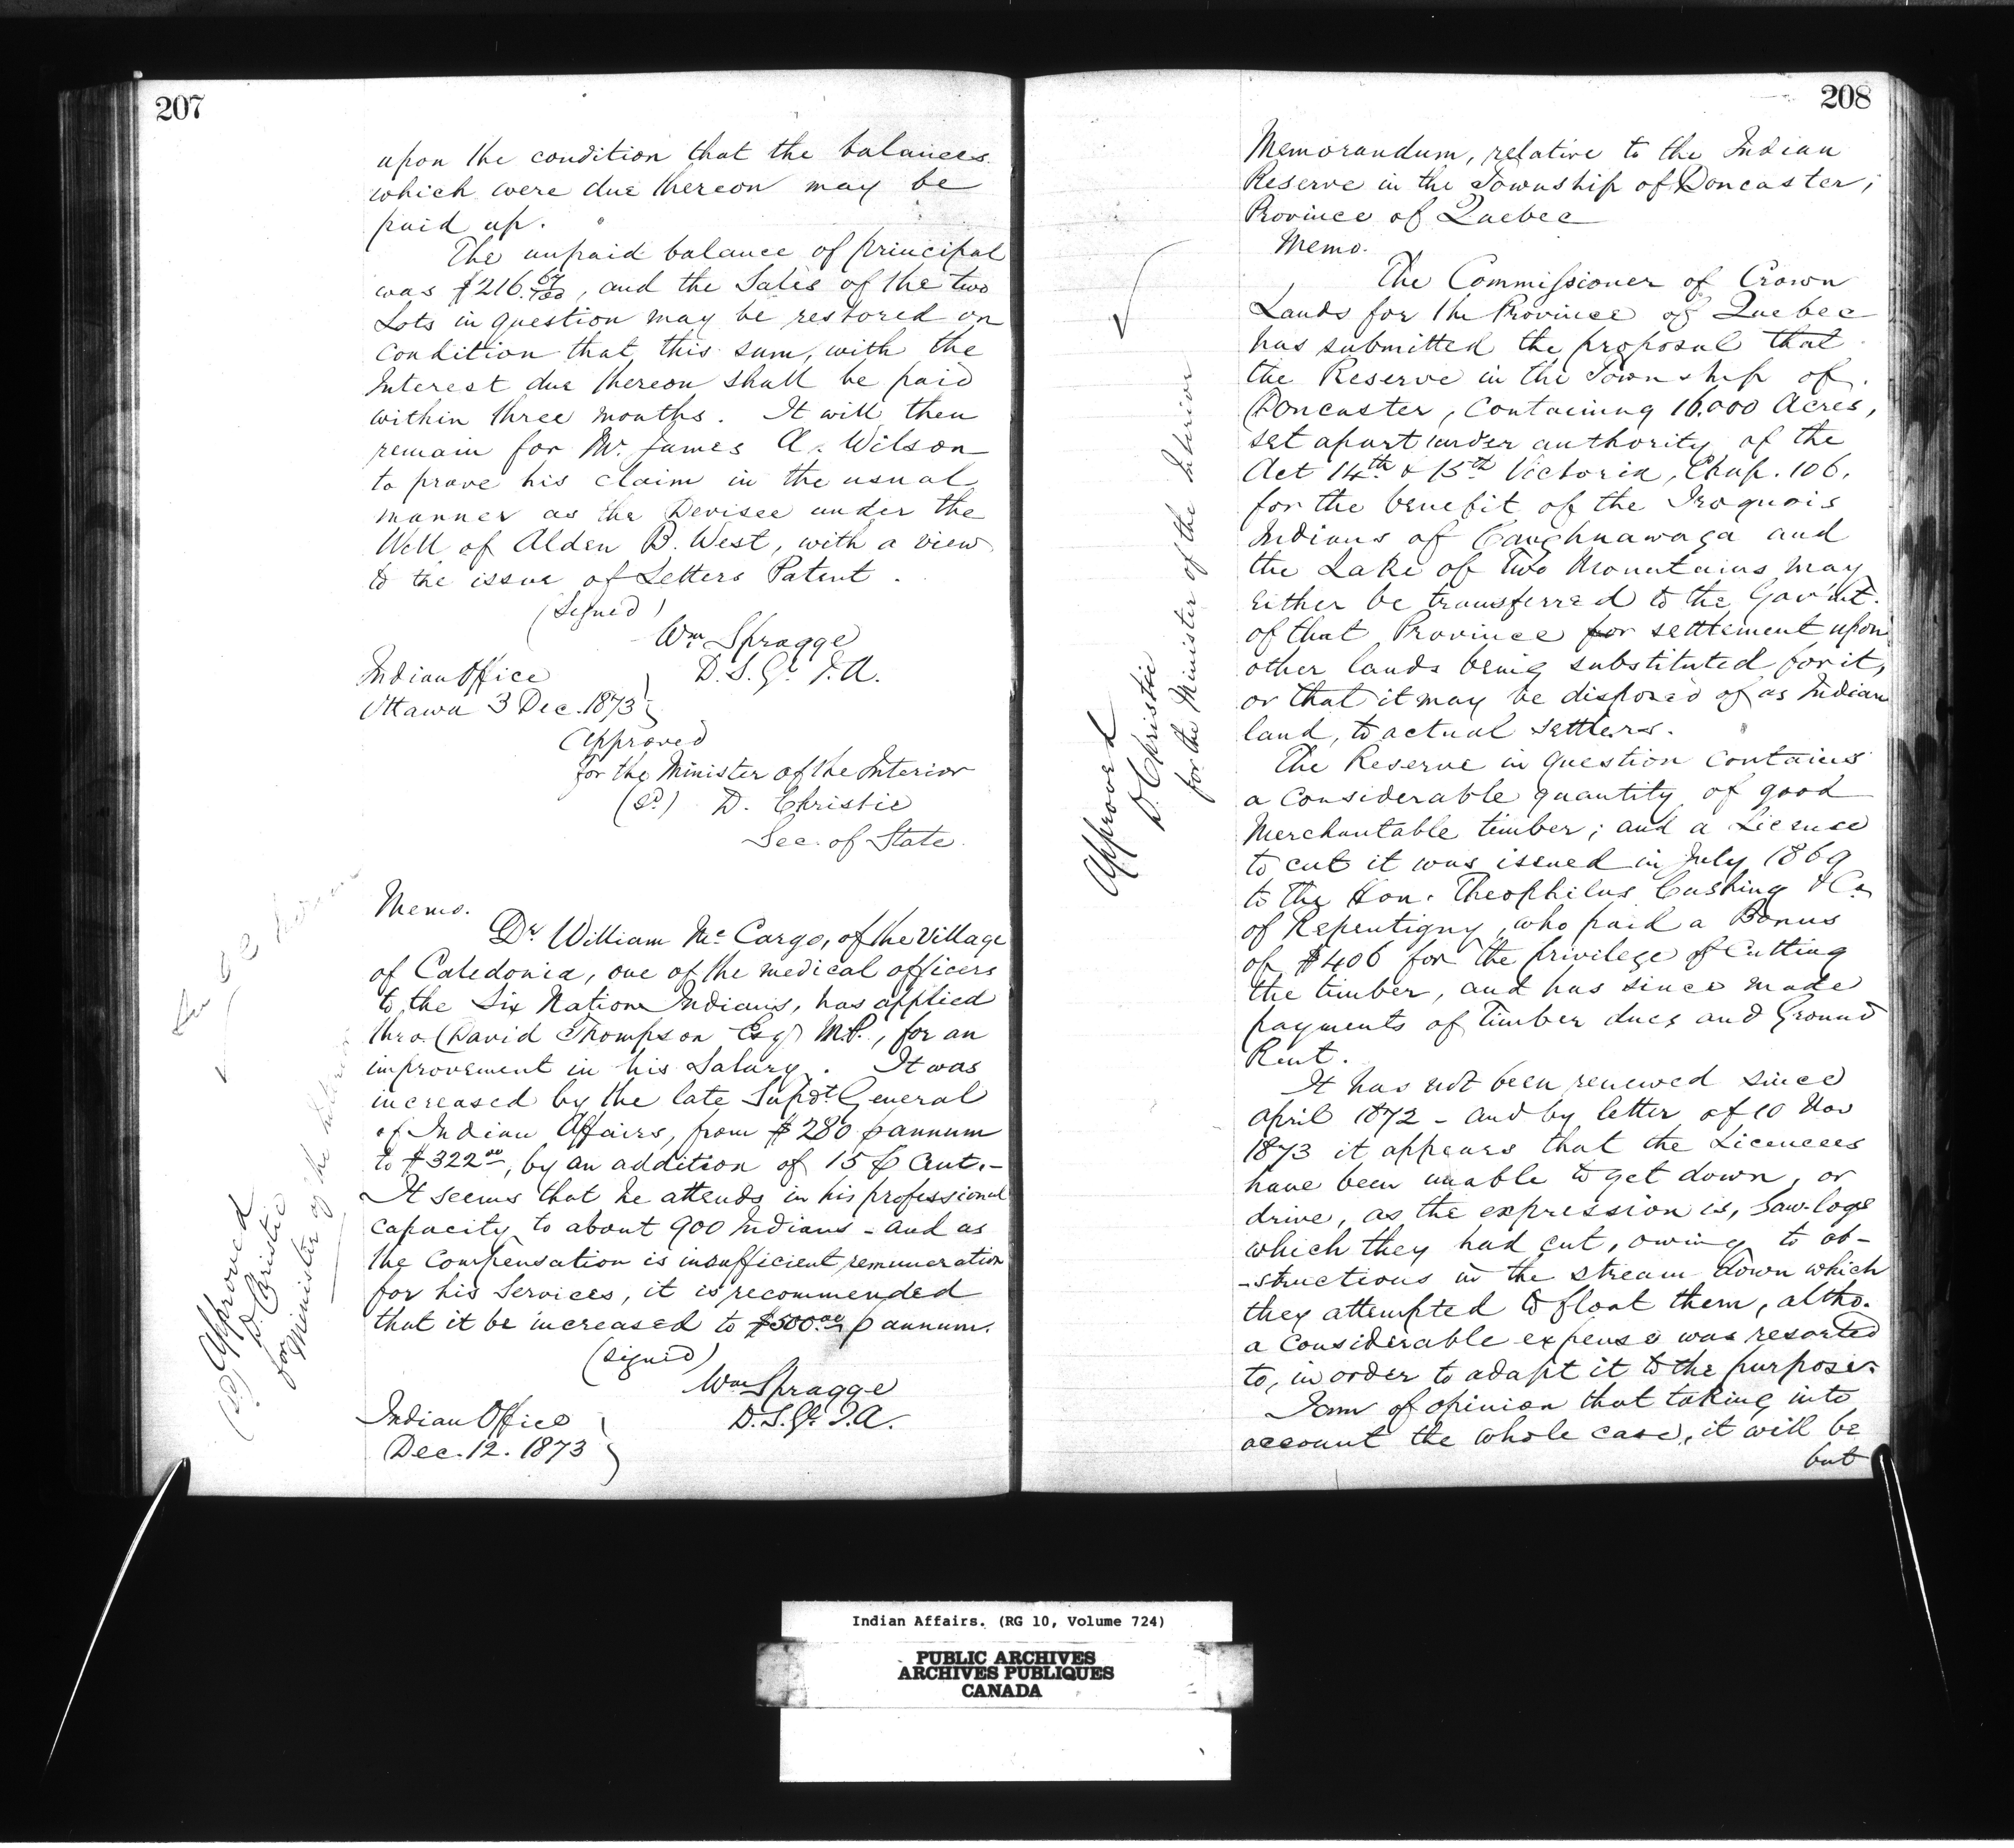 207
upon the condition that the balances
which were due thereon may be
paid up.
The unpaid balance of principal
was $216.67/100, and the Sales of the two
Lots in question may be restored on
condition that this sum, with the
Interest due thereon shall be paid
within three months. It will then
remain for Mr. James A. Wilson
to prove his claim in the usual
manner as the Devisee under the
Will of Alden B. West, with a view
to the issue of Letters Patent.
(Signed)
Wm Spragge
D.S.Gl. I.A.
Indian Office
Ottawa 3 Dec. 1873
Approved
For the Minister of the Interior
(sd) D. Christie
Sec. of State
Memo.
Dr William McCargo, of the Village
of Caledonia, one of the medical officers
to the Six Nation Indians, has applied
thro. David Thompson Esqr M.P., for an
improvement in his Salary. It was
increased by the late Supdt General
of Indian Affairs, from $280 p annum
to $322.00, by an addition of 15 p Cent.-
It seems that he attends in his professional
capacity to about 900 Indians - and as
the Compensation is insufficient remuneration
for his Services, it is recommended
that it be increased to $500.00 p annum.
(signed)
Wm Spragge
D.S.Gl. I.A.
Indian Office
Dec. 12. 1873
(sd) Approved
D. Christie
for Minister of the Interior
208
Memorandum, relative to the Indian
Reserve in the Township of Doncaster;
Province of Quebec
Memo.
The Commissioner of Crown
Lands for the Province of Quebec
has submitted the proposal that
the Reserve in the Township of
Doncaster, Containing 16.000 Acres,
set apart under authority of the
Act 14th & 15th Victoria, Chap. 106.
for the benefit of the Iroquois
Indians of Caughnawaga and
the Lake of Two Mountains may
either be transferred to the Gov'mt.
of that Province for settlement upon
other lands being substituted for it,
or that it may be disposed of as Indian
land, to actual settlers.
The Reserve in question contains
a considerable quantity of good
Merchantable timber; and a License
to cut it was issued in July 1869
to the Hon. Theophilus Cushing & Co
of Repentigny, who paid a Bonus
of $406 for the privilege of Cutting
the timber, and has since made
payments of Timber dues and Ground
Rent.
It has not been renewed since
April 1872 - and by letter of 10 Nov
1873 it appears that the Licencees
have been unable to get down, or
drive, as the expression is, Saw-logs
which they had cut, owing to ob-
-structions in the stream down which
they attempted to float them, altho.
a considerable expense was resorted
to, in order to adapt it to the purpose.
I am of opinion that taking into
account the whole case, it will be
but
Approved
D. Christie
for the Minister of the Interior
Indian Affairs. (RG 10, Volume 724)
PUBLIC ARCHIVES
ARCHIVES PUBLIQUES
CANADA